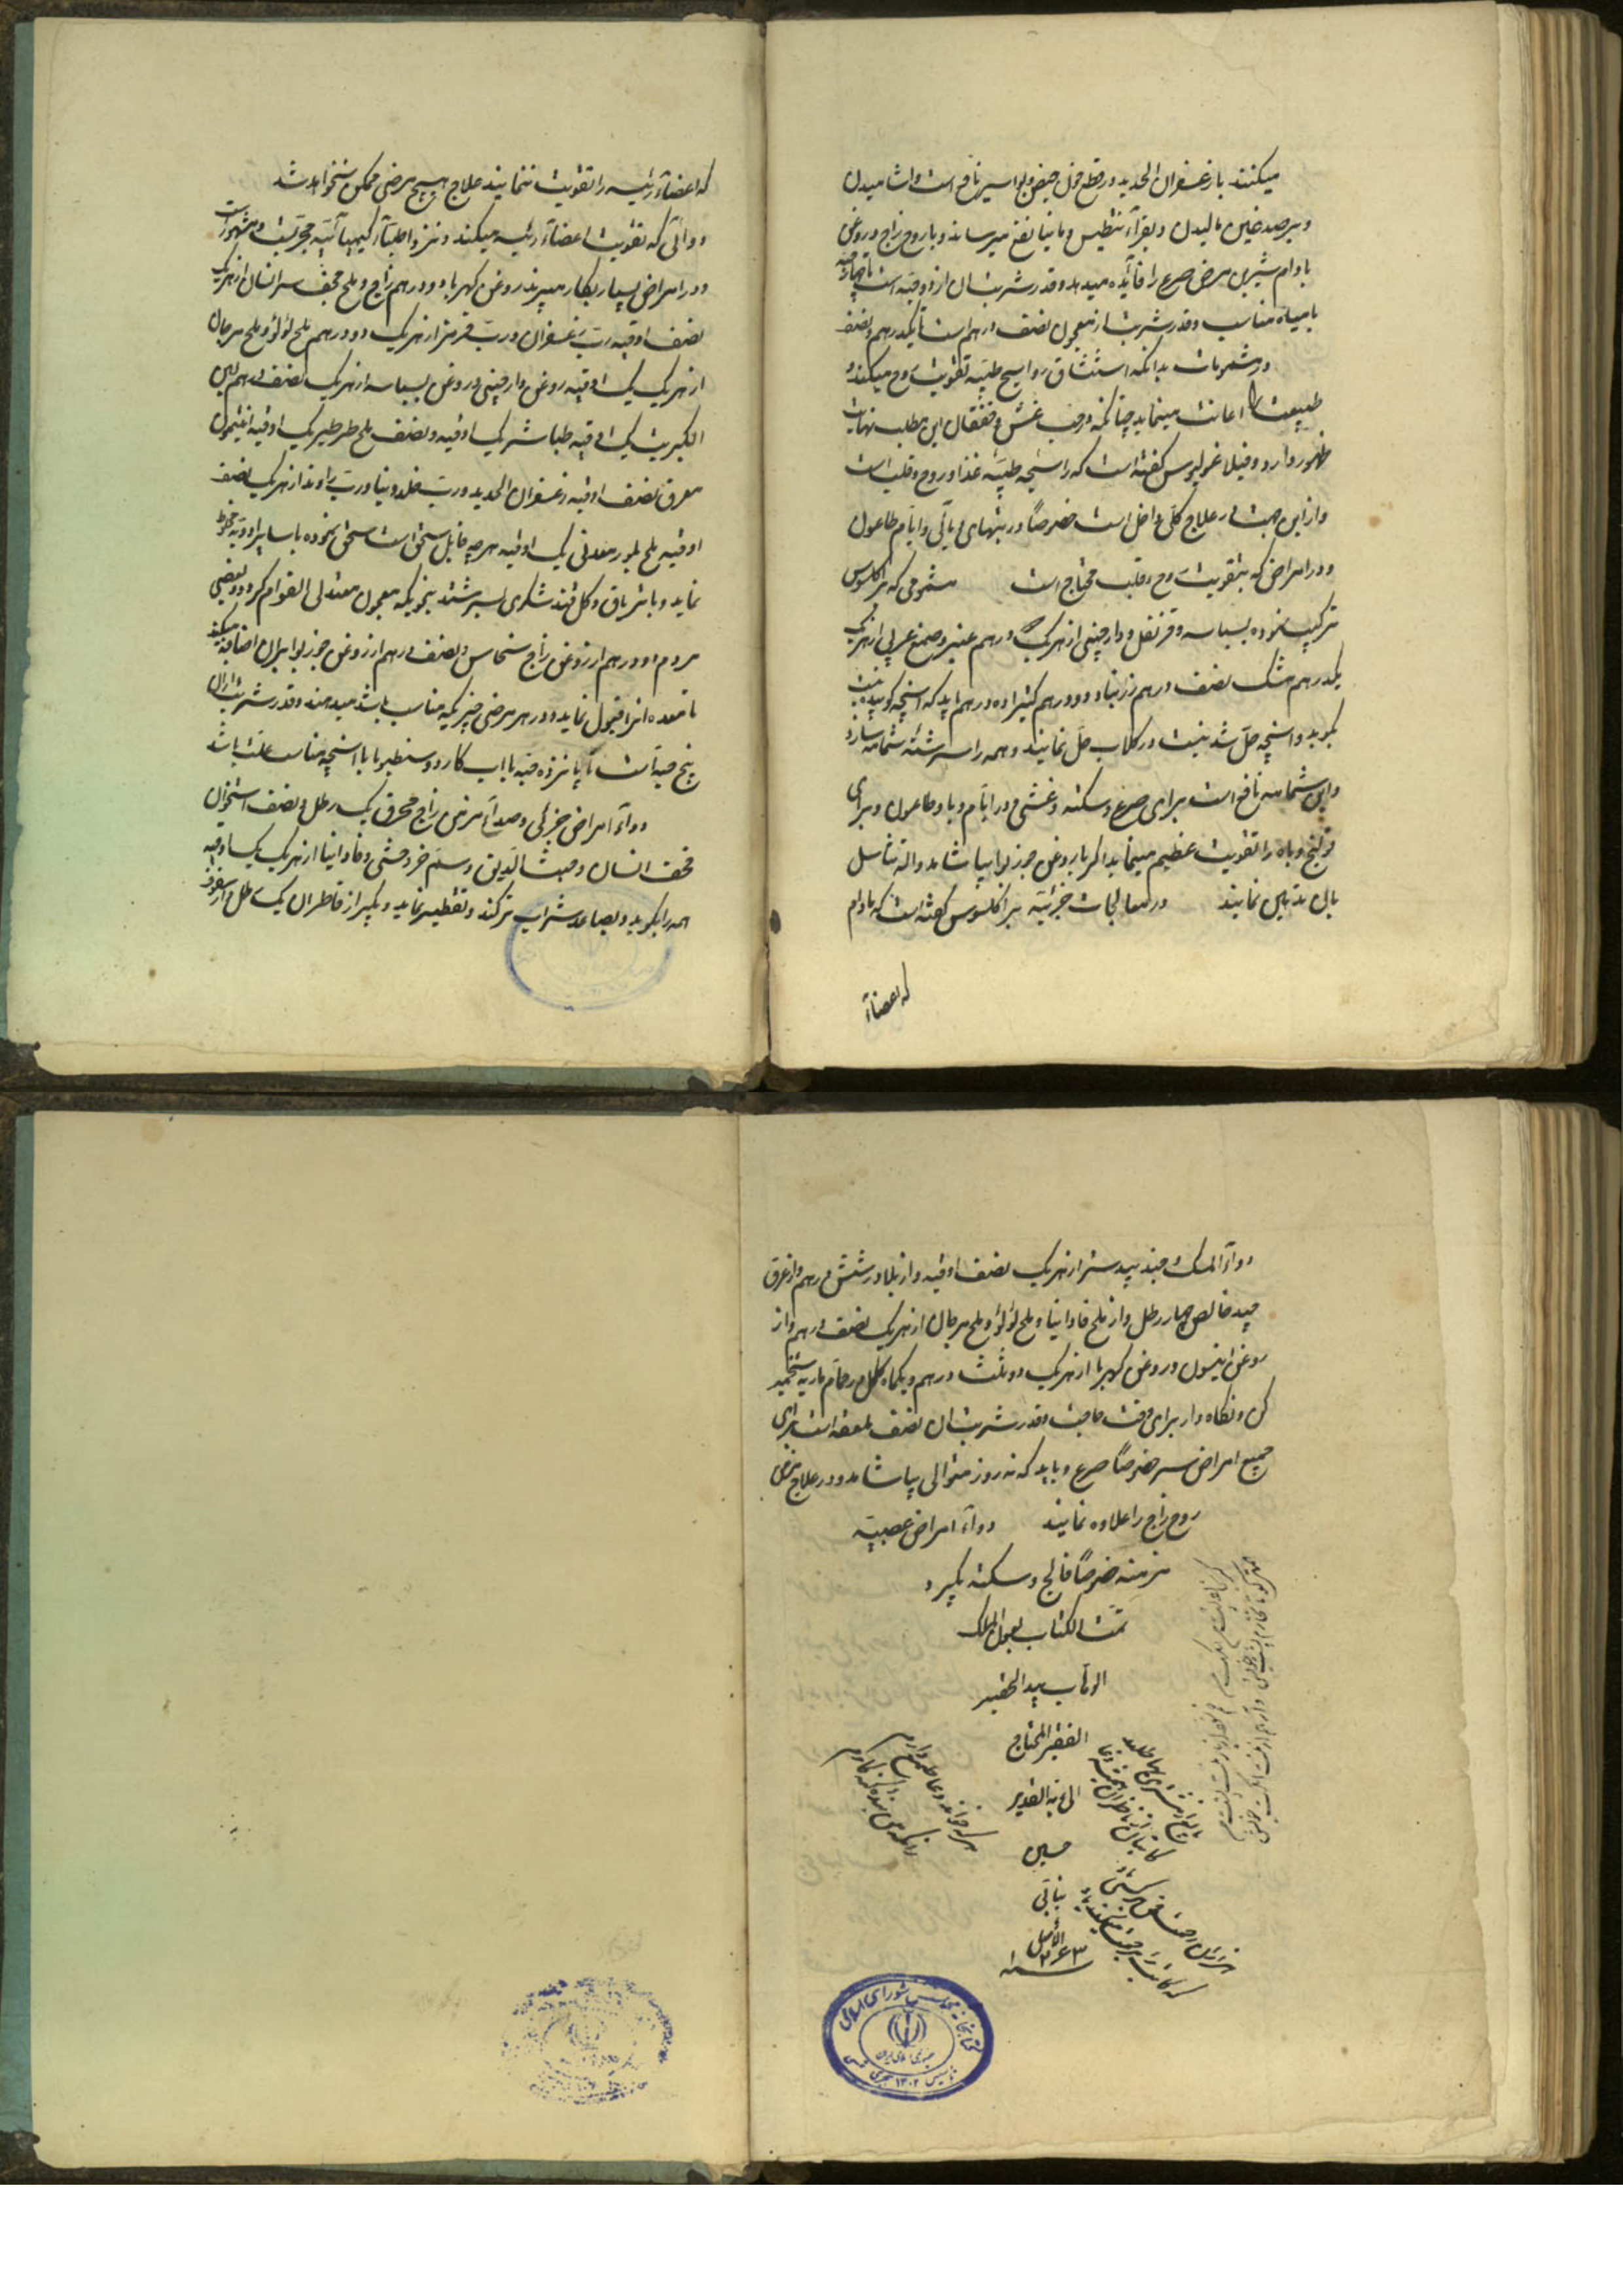 میکنند بازعفران الحدید در قطع خون حیض و بواسیر نافع است و اشامیدن
و بر صدغین مالیدن و بقرآء نطیس و مانیا نفع میرساند و با روح زاج و روغن
بادام شیرین مرض صرع را فآئده میدهد و قدر شربت ان از دو قیه است تا چهار قیه
با میاه مناسب و قدر شربت از معجون نصف درهم است تا یکدرهم و نصف
در مشمومات بدانکه استنشاق روایح طیبه تقویت روح میکند و
طبیعت را اعانت مینماید چنانکه در غشی و خفقان این مطلب نهایت
ظهور دارد و فیلاغریوس کفته است که رایحه طیبه غذاء روح و قلب است
و از این جهت در علاج کلی داخل است خصوصاً در تبهای وبآئی و ایام طاعون
و در امراض که بتقویت روح و قلب محتاج است مشمومی که براکلسوس
ترکیب نموده بسباسه و قرنفل و دارچینی از هریک درهم عنبر و صمغ عربی از هریک
یکدرهم مشک نصف درهم زرنباد دو درهم کتیرا ده درهم باید که انچه کوبیدنیست
بکوبد و انچه حل شدنیست در کلاب حل نمایند و همه را سرشته شمامه سازد
و این شمامه نافع است برای صرع و سکته و غشی و در ایام وبا و طاعون و برای
قولنج و باه را تقویت عظیم مینماید اکر با روغن جوز بوا بیاشامد و الة تناسل
بان تدهین نمایند در معالجات جزئیه براکلسوس کفته است که مادام
که اعضآء
که اعضآء رئیسه را تقویت ننمایند علاج هیچ مرضی ممکن نخواهد شد
دوائی که تقویت اعضآء رئیسه میکند و نزد اطبآء کیمیائیه مجربست و مشهور است
و در امراض بسیار بکار میبرند روغن کهربا دو درهم زاج و ملح مخ سر انسان از هریک
نصف اوقیه رب زعفران و رب قرمز از هریک دو درهم ملح لؤلؤ و ملح مرجان
از هریک یک اوقیه روغن دارچینی و روغن بسباسه از هریک نصف درهم لبن
الکبریت یک اوقیه طباشیر یک اوقیه و نصف ملح طرطیر یک اوقیه انتیمون
معرق نصف اوقیه زعفران الحدید و رب خلدونیا و رب راوند از هریک نصف
اوقیه ملح بلور معدنی یک اوقیه هر چه قابل سحق است سحق نموده با سایر ادویه مخلوط
نماید و با تریاق و کل قند شکری بسرشند بنحویکه معجون معتدل القوام کردد و بعضی
مردم دو درهم از روغن زاج نحاس و نصف درهم از روغن جوز بوا بران اضافه میکنند
تا معده انرا قبول نماید و در هر مرضی چیزیکه مناسب باشد میدهند و قدر شربت ان
پنج حبه است تا پانزده حبه با اب کاردوسنطبو یا با انچه مناسب علت باشد
دوآء امراض جزئی و صداء مزمن زاج محرق یک رطل و نصف استخوان
قحف انسان و خبث الدیق و سلم خر وحشی و فاوانیا از هریک یک اوقیه
همه را بکوبد و بصاعد شراب تر کند و تقطیر نماید و بکیرد از قاطر ان یک رطل و از سفوف
دوآء المسک و جند بیدستر از هریک نصف اوقیه و از بلادر شش درهم و از عرق
جید خالص چهار رطل و از ملح فاوانیا و ملح لؤلؤ و ملح مرجان از هریک نصف درهم و از
روغن انیسون و روغن کهربا از هریک دو ثلث درهم و یکماه کامل در حمام ماریه تخمیر
کن و نکاه دار برای وقت حاجت و قدر شربت ان نصف ملعقه است برای
جمیع امراض سر خصوصاً صرع و باید که نه روز متوالی بیاشامد و در علاج مرض
روح زاج را علاوه نمایند دوآء امراض عصبیه
مزمنه خصوصاً فالج و سکته بکیرد
تمت الکتاب بعون الملک
الوهاب بید الحقیر
الفقیر المحتاج
الی ربه القدیر
حسین
بنابی
الأصل
سنه ۱۲۶۳
هر که خواند دعا طمع دارم
زانکه من بنده کنه کارم
کتابخانه مجلس شورای اسلامی
جمهوری اسلامی ایران
تاسیس ۱۳۰۲ هجری شمسی